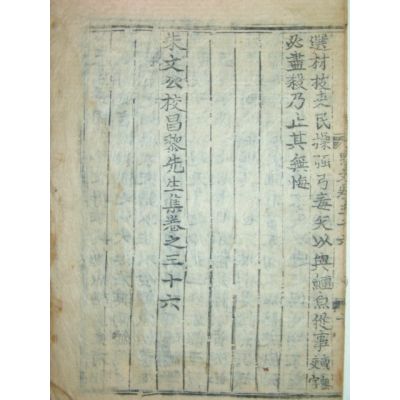 選材技吏民操强弓毒矢以與鱷魚從事
必盡殺乃止其無悔
朱文公校昌黎先生集卷之三十六